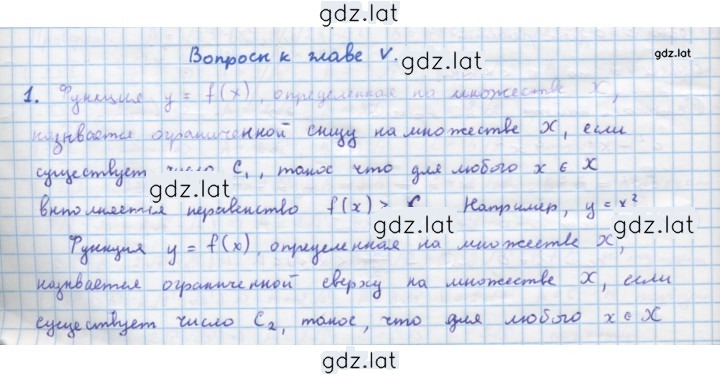 gdz.lat
Вопросы к главе V.
gdz.lat
gdz.lat
1. Функция y = f(x), определенная на множестве X,
называется ограниченной снизу на множестве X, если
существует число C₁, такое что для любого x ∈ X
gdz.lat
gdz.lat
выполняется неравенство f(x) > Например, y = x²
Функция y = f(x), определенная на множестве X,
называется ограниченной сверху на множестве X, если
существует число C₂, такое, что для любого x ∈ X
gdz.lat